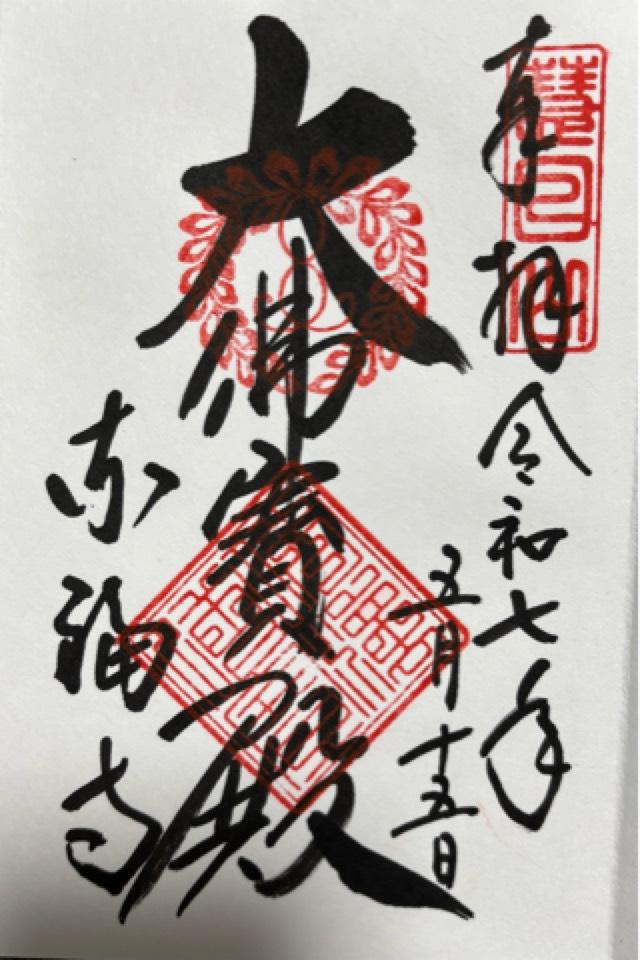 慧日山
奉拝 令和七年
五月十五日
大佛寳殿
東福寺